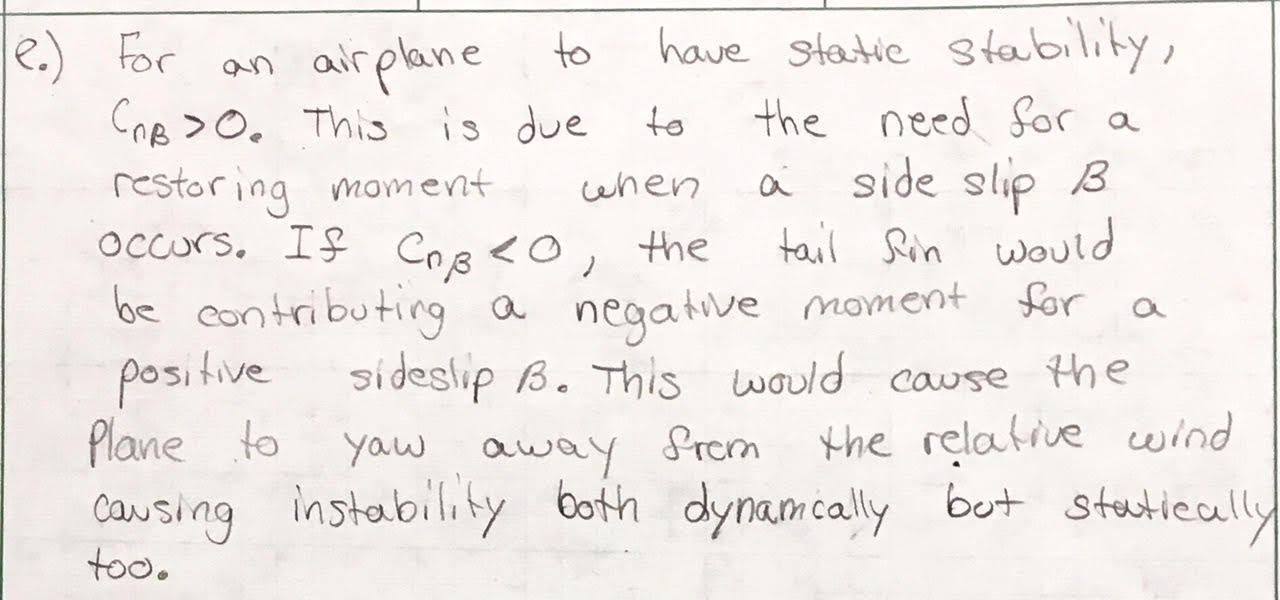 e.) For an airplane to have static stability,
Cnβ>0. This is due to the need for a
restoring moment when a side slip β
occurs. If Cnβ<0, the tail fin would
be contributing a negative moment for a
positive sideslip β. This would cause the
Plane to yaw away from the relative wind
causing instability both dynamically but statically
too.